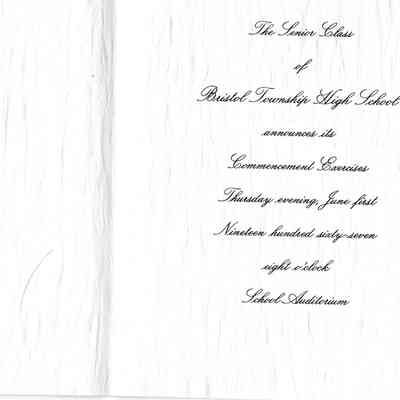 The Senior Class
of
Bristol Township High School
announces its
Commencement Exercises
Thursday evening, June first
Nineteen hundred sixty-seven
eight o'clock
School Auditorium